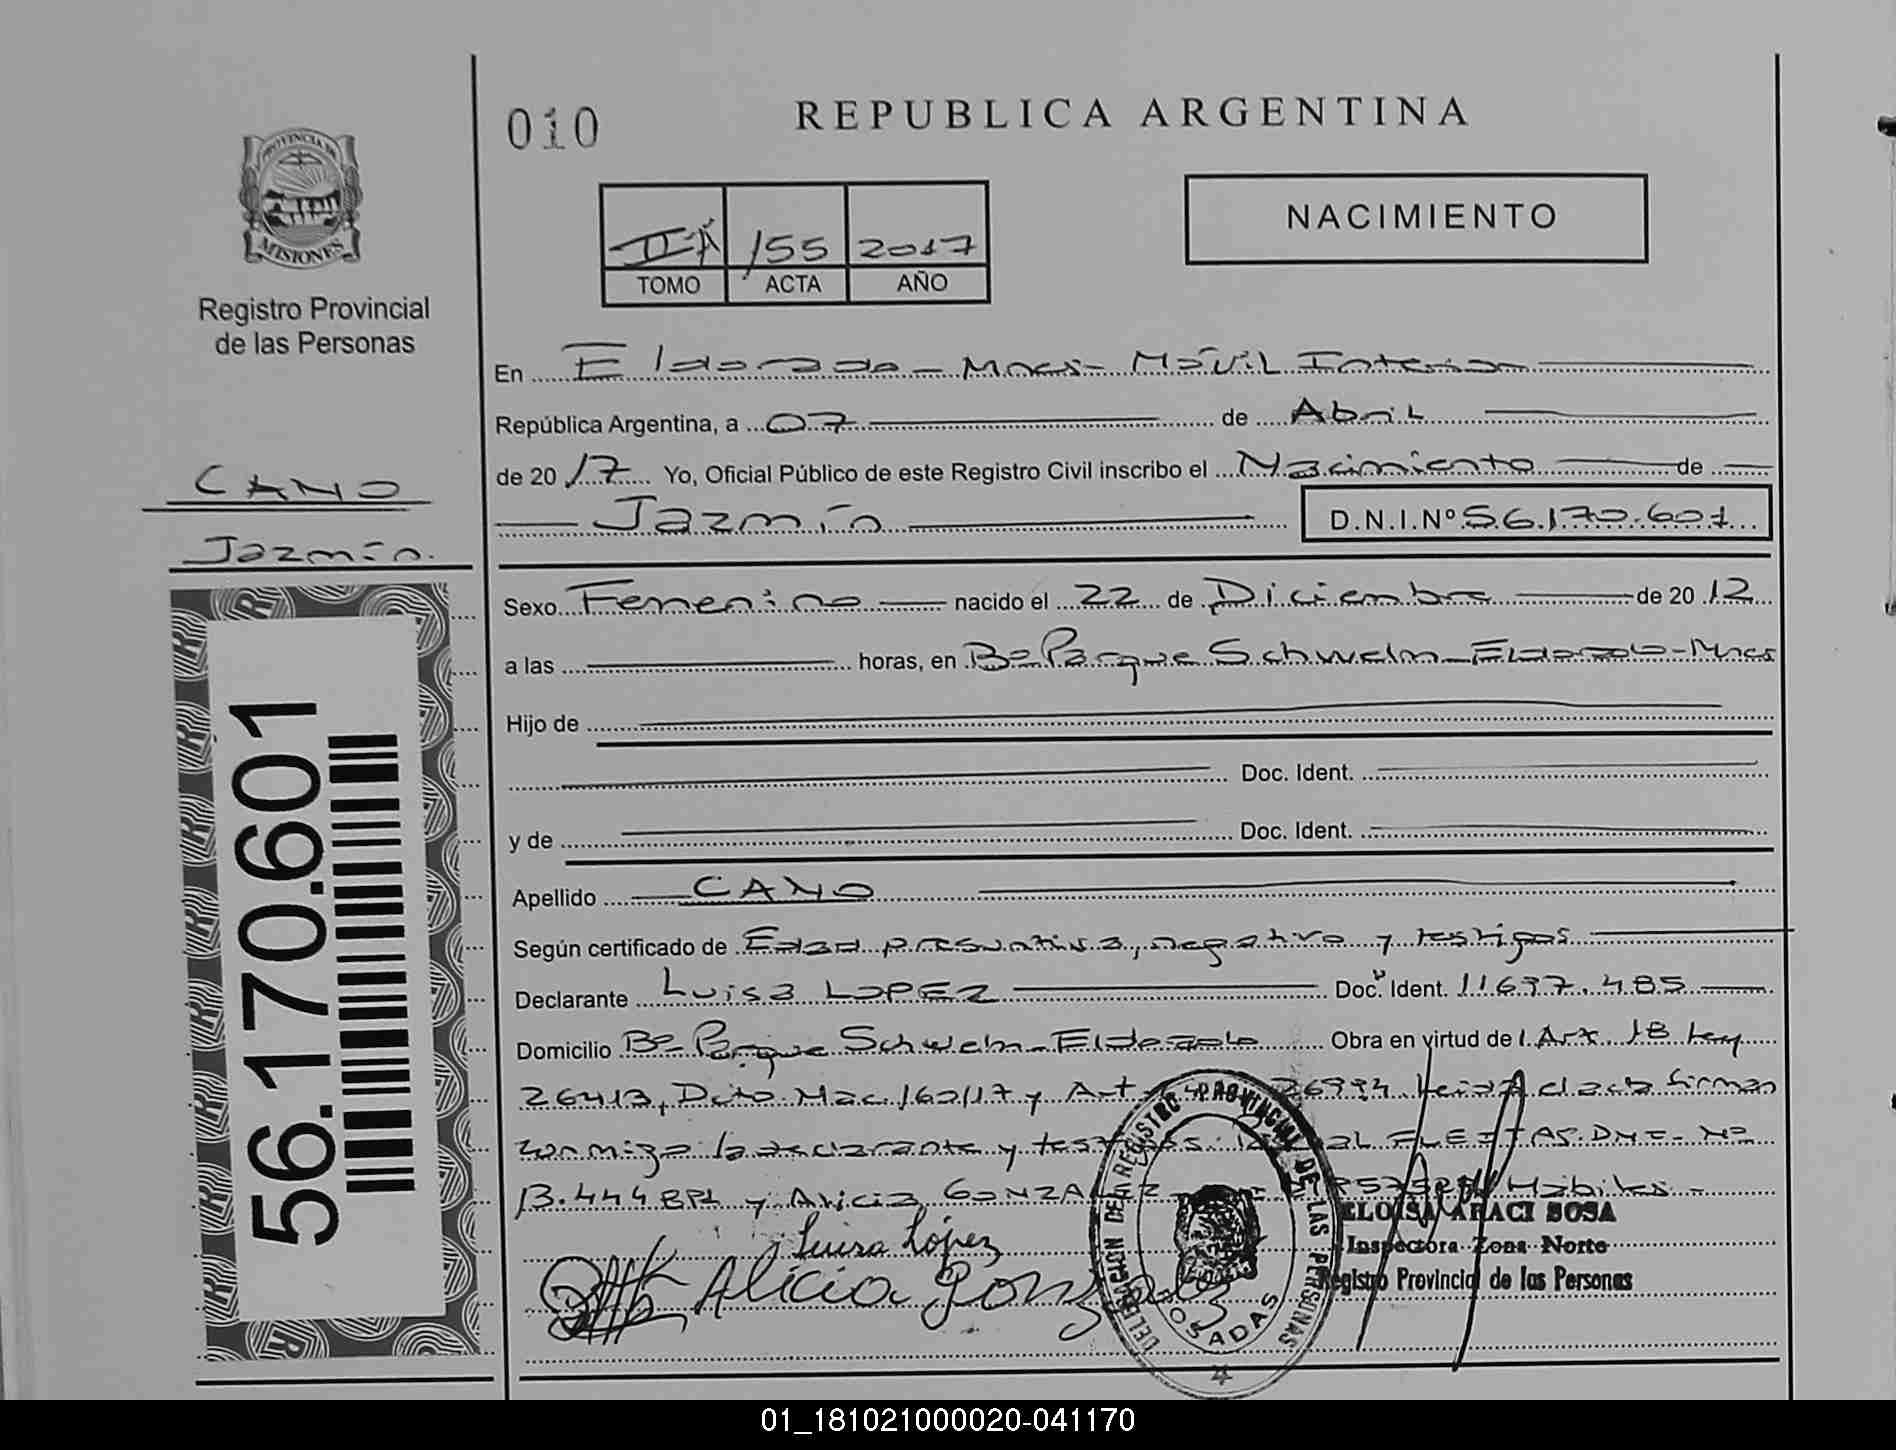 010
REPUBLICA ARGENTINA
PROVINCIA DE
MISIONES
Registro Provincial
de las Personas
NACIMIENTO
II A 155 2017
TOMO ACTA AÑO
En Eldorado - Mnes - Móvil Interior
República Argentina, a 07 de Abril
de 20 17 Yo, Oficial Público de este Registro Civil inscribo el Nacimiento de
Jazmín D.N.I.Nº 56.170.601
CANO
Jazmín.
Sexo Femenino nacido el 22 de Diciembre de 20 12
a las horas, en Bº Parque Schwelm - Eldorado - Mnes
Hijo de
Doc. Ident.
y de Doc. Ident.
Apellido CANO
Según certificado de Edad presuntiva, negativo y testigos
Declarante Luisa LOPEZ Doc. Ident. 11637.485
Domicilio Bº Parque Schwelm - Eldorado Obra en virtud de Art. 18 Ley
26413, Dcto Nac 160/17 y Art 26994 Leída el acta firman
conmigo la declarante y DNI - Nº
13.444 y Alicia GONZALEZ Hábiles -
Luisa López
Alicia Gonzalez
DELEGACION DEL REGISTRO PROVINCIAL DE LAS PERSONAS
POSADAS
ELOISA ARACI SOSA
Inspectora Zona Norte
Registro Provincial de las Personas
56.170.601
01_181021000020-041170